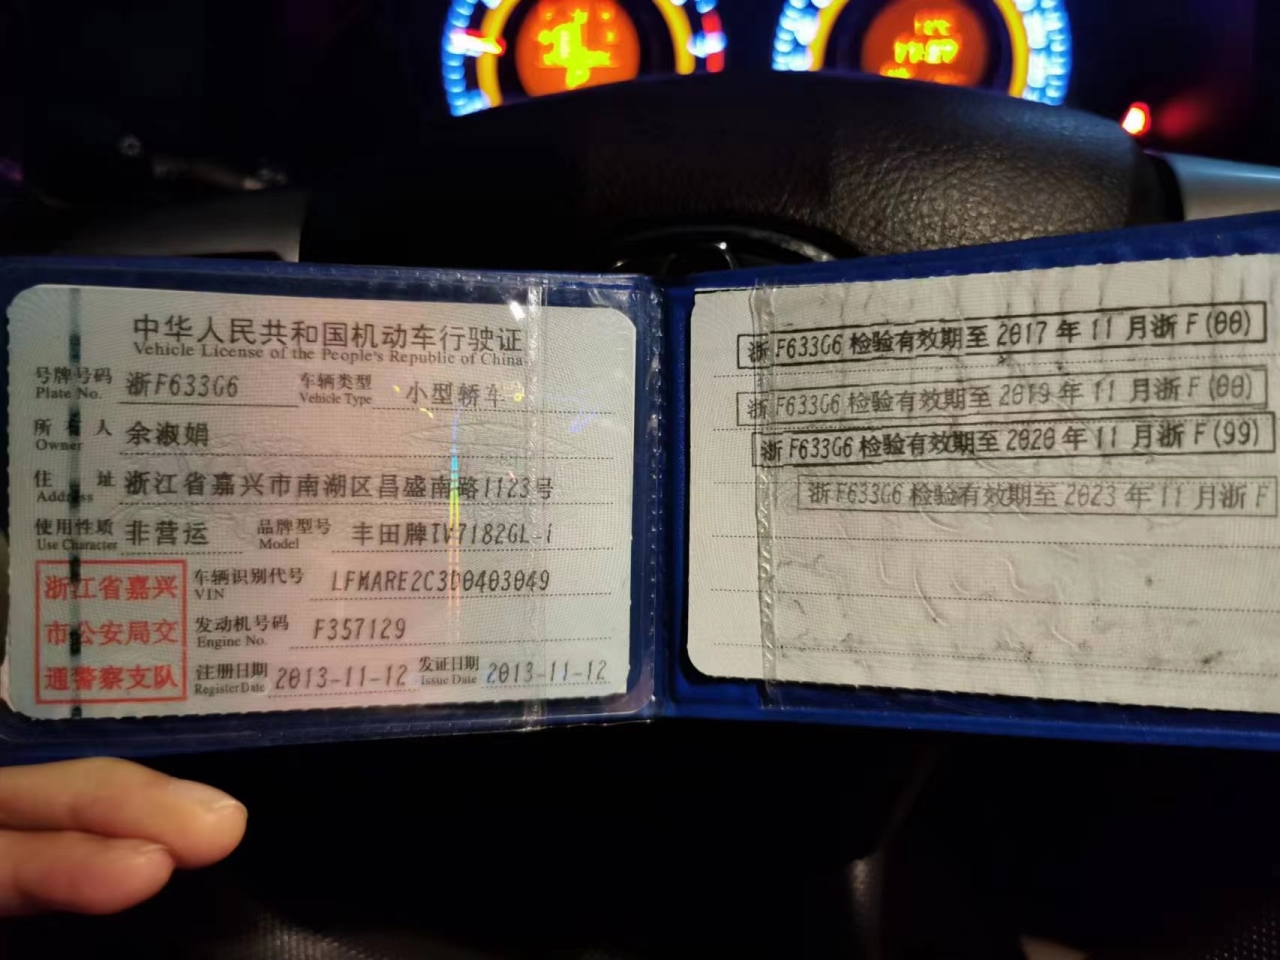 中华人民共和国机动车行驶证
Vehicle License of the People's Republic of China
号牌号码 浙F633G6 车辆类型 小型轿车
Plate No. Vehicle Type
所有人 余淑娟
Owner
住址 浙江省嘉兴市南湖区昌盛南路1123号
Address
使用性质 非营运 品牌型号 丰田牌TV7182GL-i
Use Character Model
浙江省嘉兴
市公安局交
通警察支队
车辆识别代号 LFMARE2C3D0403049
VIN
发动机号码 F357129
Engine No.
注册日期 2013-11-12 发证日期 2013-11-12
Register Date Issue Date
浙F633G6检验有效期至2017年11月浙F(00)
浙F633G6检验有效期至2019年11月浙F(00)
浙F633G6检验有效期至2020年11月浙F(99)
浙F633G6检验有效期至2023年11月浙F